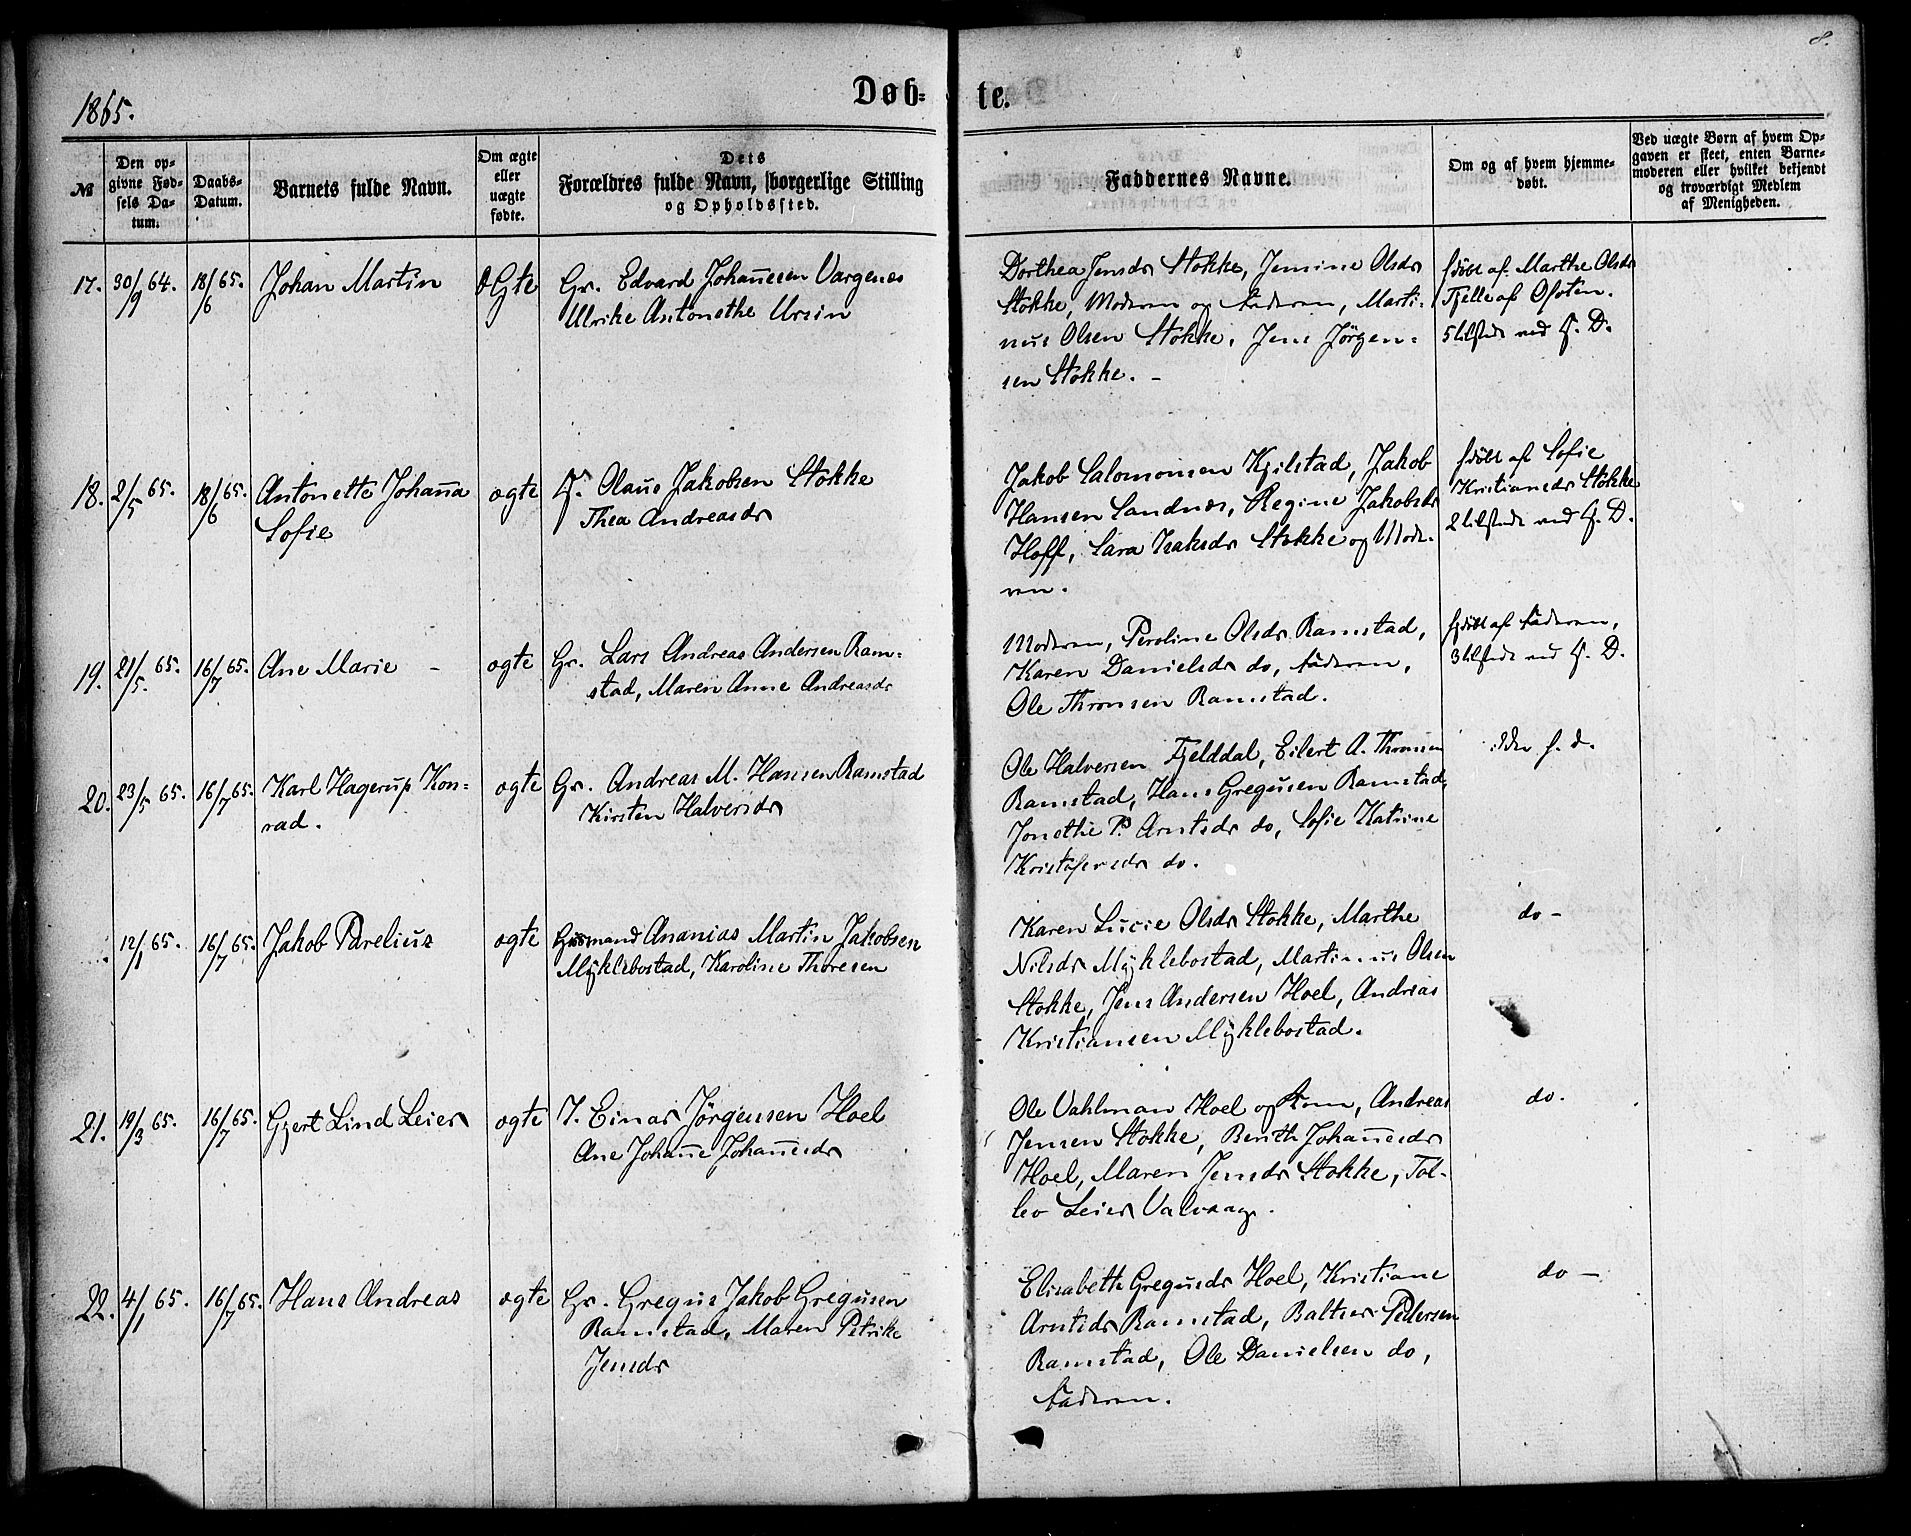 8.
1865.
Døb-
te.
№
Den op-
givne Fød-
sels Da-
tum.
Daabs-
Datum.
Barnets fulde Navn.
Om ægte
eller
uægte
fødte.
Dets
Forældres fulde Navn, borgerlige Stilling
og Opholdssted.
Faddernes Navne.
Om og af hvem hjemme-
døbt.
Ved uægte Børn af hvem Op-
gaven er skeet, enten Barne-
moderen eller hvilket bekjendt
og troværdigt Medlem
af Menigheden.
17.
30/9 64.
18/6 65.
Johan Martin
Gr. Edvard Johannesen Vargenes
Ulrike Antonethe Ursin
Dorthea Jensdr Stokke, Jemine Olsdr
Stokke, Moderen og Faderen, Marti-
nus Olsen Stokke, Jens Jørgen-
sen Stokke. -
hjdøbt af Marthe Olsdr
Fjelle af Ofoten.
5 tilstede ved H. D.
18.
2/5 65.
18/6 65.
Antonette Johanna
Sofie
ægte
Olaus Jakobsen Stokke
Thea Andreasdr
Jakob Salomonsen Kjilstad, Jakob
Hansen Sandnes, Regine Jakobsdr
Hoff, Sara Isaksdr Stokke og Mode-
ren.
hjdøbt af Sofie
Kristiansdr Stokke
2 tilstede ved H. D.
19.
21/5. 65.
16/7 65.
Ane Marie -
ægte
Gr. Lars Andreas Andersen Ram-
stad, Maren Anne Andreasdr
Moderen, Peroline Olsdr Ramstad,
Karen Danielsdr do, Faderen,
Ole Thronsen Ramstad.
hjdøbt af Faderen,
3 tilstede ved H. D.
20.
23/5 65.
16/7 65.
Karl Hagerup Kon-
rad.
ægte
Gr. Andreas M. Hansen Ramstad
Kirsten Halversdr
Ole Halversen Fjelddal, Eilert A. Thronsen
Ramstad, Hans Gregusen Ramstad,
Jonethe P. Arntsdr do, Sofie Katrine
Kristofersdr do.
ikke h. d.
12/1 65.
16/7 65.
Jakob Parelius
ægte
Husmand Ananias Martin Jakobsen
Myklebostad, Karoline Thoresen
Karen Lucie Olsdr Stokke, Marthe
Nilsdr Myklebostad, Martinus Olsen
Stokke, Jens Andersen Hoel, Andreas
Kristiansen Myklebostad.
do -
21.
19/3 65.
16/7 65.
Gjert Lind Leier
ægte
I. Einar Jørgensen Hoel
Ane Johanne Johannesdr
Ole Vahlman Hoel og Kone, Andreas
Jensen Stokke, Berith Johannesdr
Hoel, Maren Jensdr Stokke, Tol-
lev Leier Valvaag.
do.
22.
4/1 65.
16/7 65.
Hans Andreas
ægte
Gr. Gregus Jakob Gregusen
Ramstad, Maren Petrike
Jensdr
Elisabeth Gregusdr Hoel, Kristiane
Arntsdr Ramstad, Baltser Pedersen
Ramstad, Ole Danielsen do,
Faderen.
do -